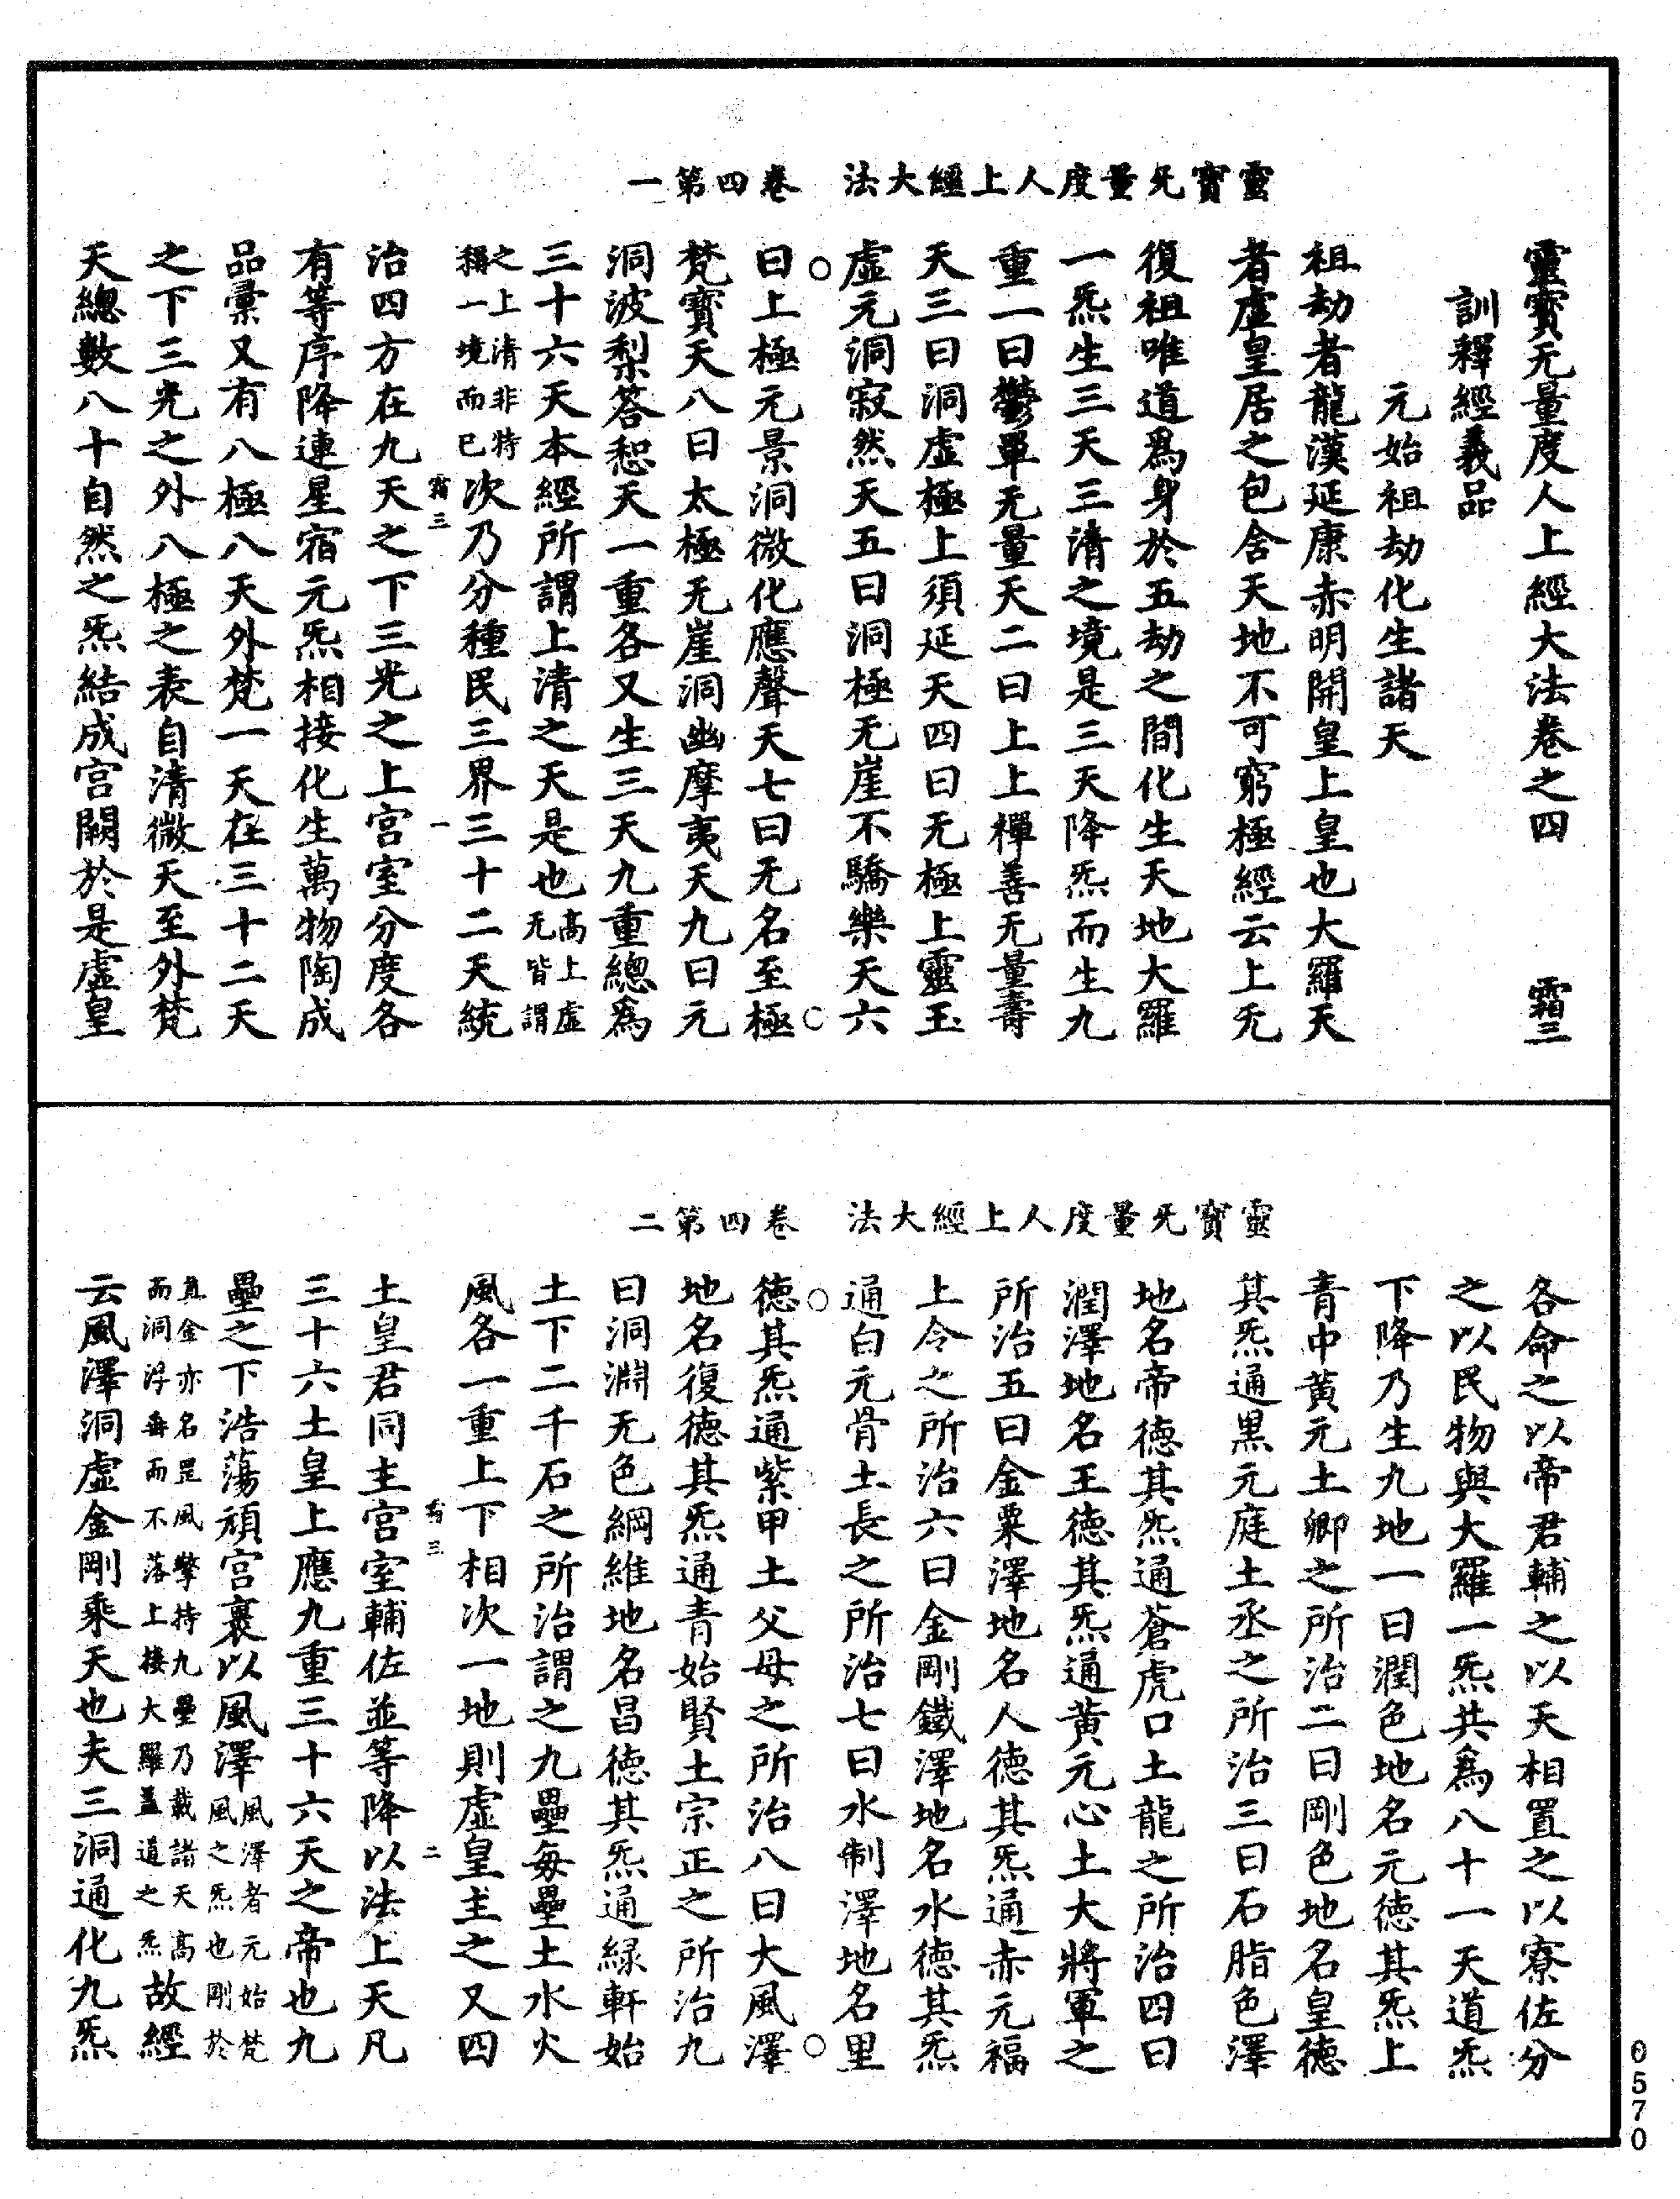 靈寶无量度人上經大法　卷四第一
靈寶无量度人上經大法卷之四　霜三
訓釋經義品
元始祖劫化生諸天
祖劫者龍漢延康赤明開皇上皇也大羅天
者虛皇居之包含天地不可窮極經云上无
復祖唯道爲身於五劫之間化生天地大羅
一炁生三天三清之境是三天降炁而生九
重一曰鬱單无量天二曰上上禪善无量壽
天三曰洞虛極上須延天四曰无極上靈玉
虛元洞寂然天五曰洞極无崖不驕樂天六
曰上極元景洞微化應聲天七曰无名至極
梵寶天八曰太極无崖洞幽摩夷天九曰元
洞波梨答惒天一重各又生三天九重總爲
三十六天本經所謂上清之天是也高上虛无皆謂
之上清非特稱一境而已次乃分種民三界三十二天統
霜三　一
治四方在九天之下三光之上宮室分度各
有等序降連星宿元炁相接化生萬物陶成
品彙又有八極八天外梵一天在三十二天
之下三光之外八極之表自清微天至外梵
天總數八十自然之炁結成宮闕於是虛皇
靈寶无量度人上經大法　卷四第二
各命之以帝君輔之以天相置之以寮佐分
之以民物與大羅一炁共爲八十一天道炁
下降乃生九地一曰潤色地名元德其炁上
青中黃元土卿之所治二曰剛色地名皇德
其炁通黑元庭土丞之所治三曰石脂色澤
地名帝德其炁通蒼虎口土龍之所治四曰
潤澤地名王德其炁通黃元心土大將軍之
所治五曰金粟澤地名人德其炁通赤元福
上令之所治六曰金剛鐵澤地名水德其炁
通白元骨土長之所治七曰水制澤地名里
德其炁通紫甲土父母之所治八曰大風澤
地名復德其炁通青始賢土宗正之所治九
曰洞淵无色綱維地名昌德其炁通緑軒始
土下二千石之所治謂之九壘每壘土水火
風各一重上下相次一地則虛皇主之又四
霜三　二
土皇君同主宮室輔佐並等降以法上天凡
三十六土皇上應九重三十六天之帝也九
壘之下浩蕩頑宮裹以風澤風澤者元始梵風之炁也剛於
真金亦名罡風擎持九壘乃載諸天高而洞浮舞而不落上接大羅蓋道之炁故經
云風澤洞虛金剛乘天也夫三洞通化九炁
0570